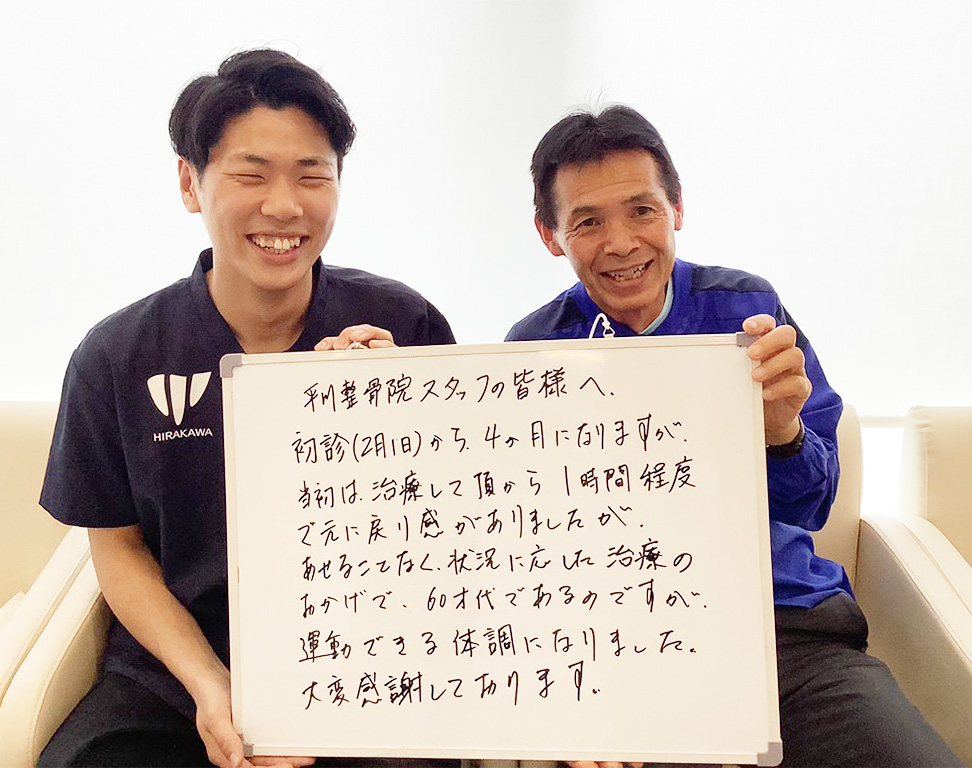 HIRAKAWA
平川整骨院スタッフの皆様へ.
初診(2月1日)から、4か月になりますが、
当初は、治療して頂から1時間程度
で元に戻り感がありましたが、
あせることなく、状況に応した治療の
おかげで、60才代であるのですが、
運動できる体調になりました。
大変感謝しております。